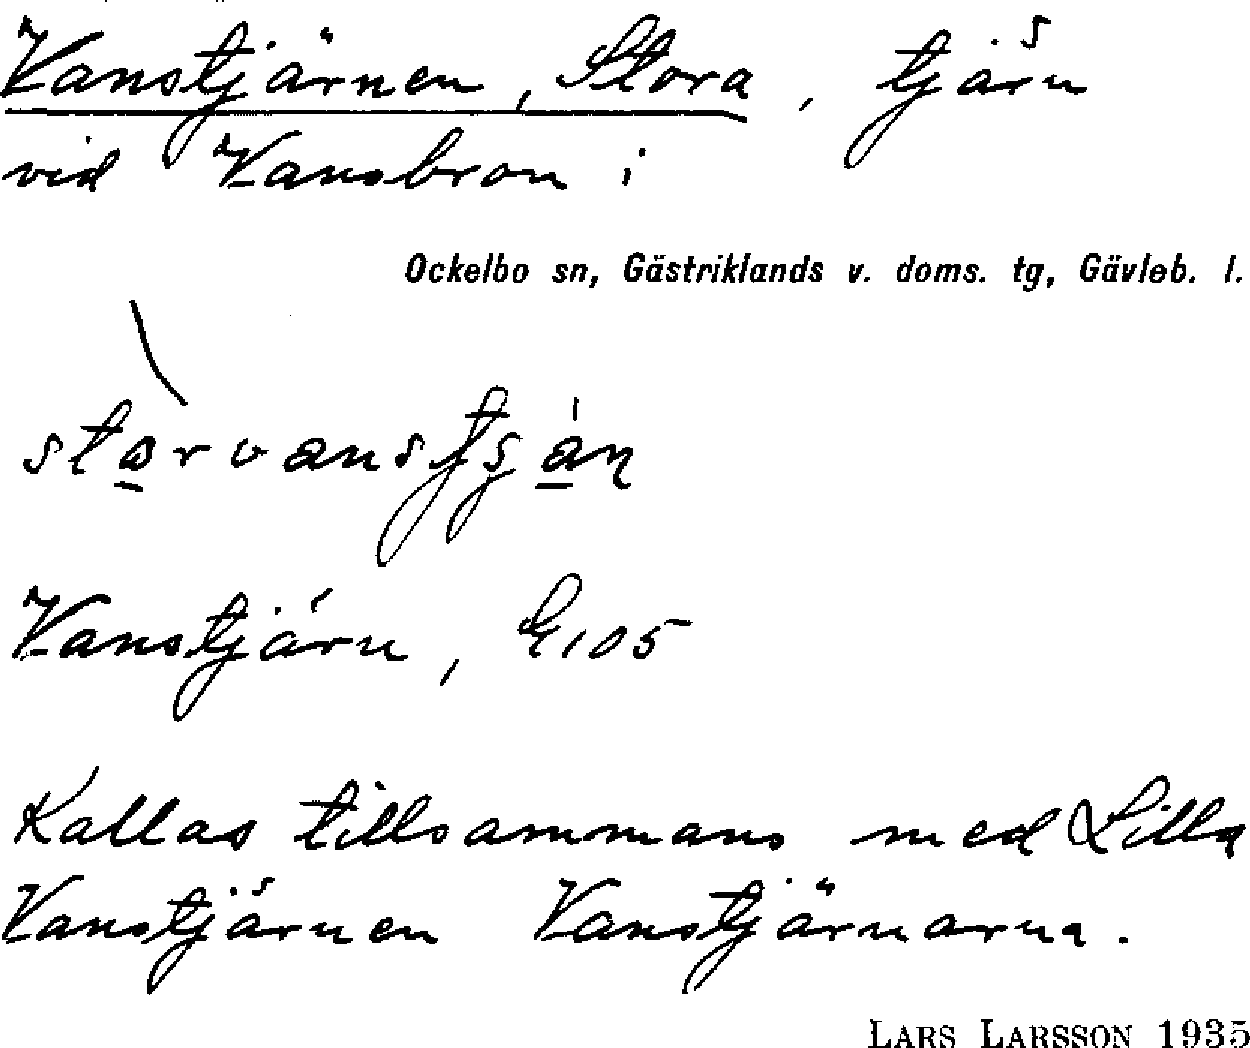 Vanstjärnen, Stora, tjärn
vid Vansbron i
Ockelbo sn, Gästriklands v. doms. tg, Gävleb. l.
Vanstjärn, G105
Kallas tillsammans med Lilla
Vanstjärnen Vanstjärnarna.
LARS LARSSON 1935